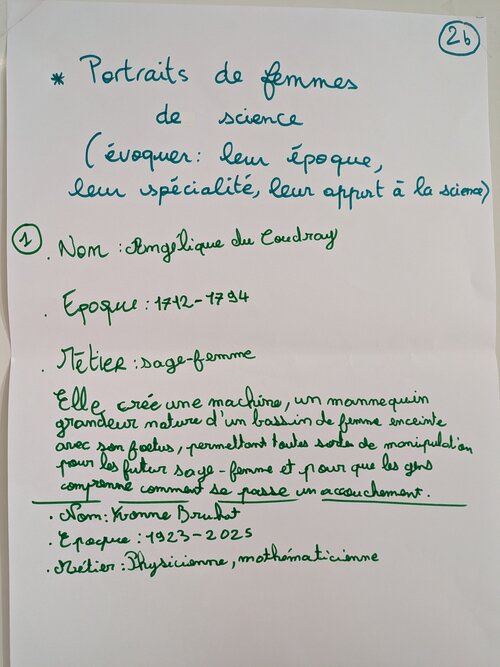 2b
* Portraits de femmes
de science
(évoquer: leur époque,
leur spécialité, leur apport à la science)
1 . Nom : Angélique du Coudray
. Epoque : 1712-1794
. Métier : sage-femme
Elle crée une machine, un mannequin
grandeur nature d'un bassin de femme enceinte
avec son foetus, permettant toutes sorte de manipulation
pour les futur sage-femme et pour que les gens
comprenne comment se passe un accouchement.
. Nom : Yvonne Bruhat
. Epoque : 1923-2025
. Métier : Physicienne, mathématicienne